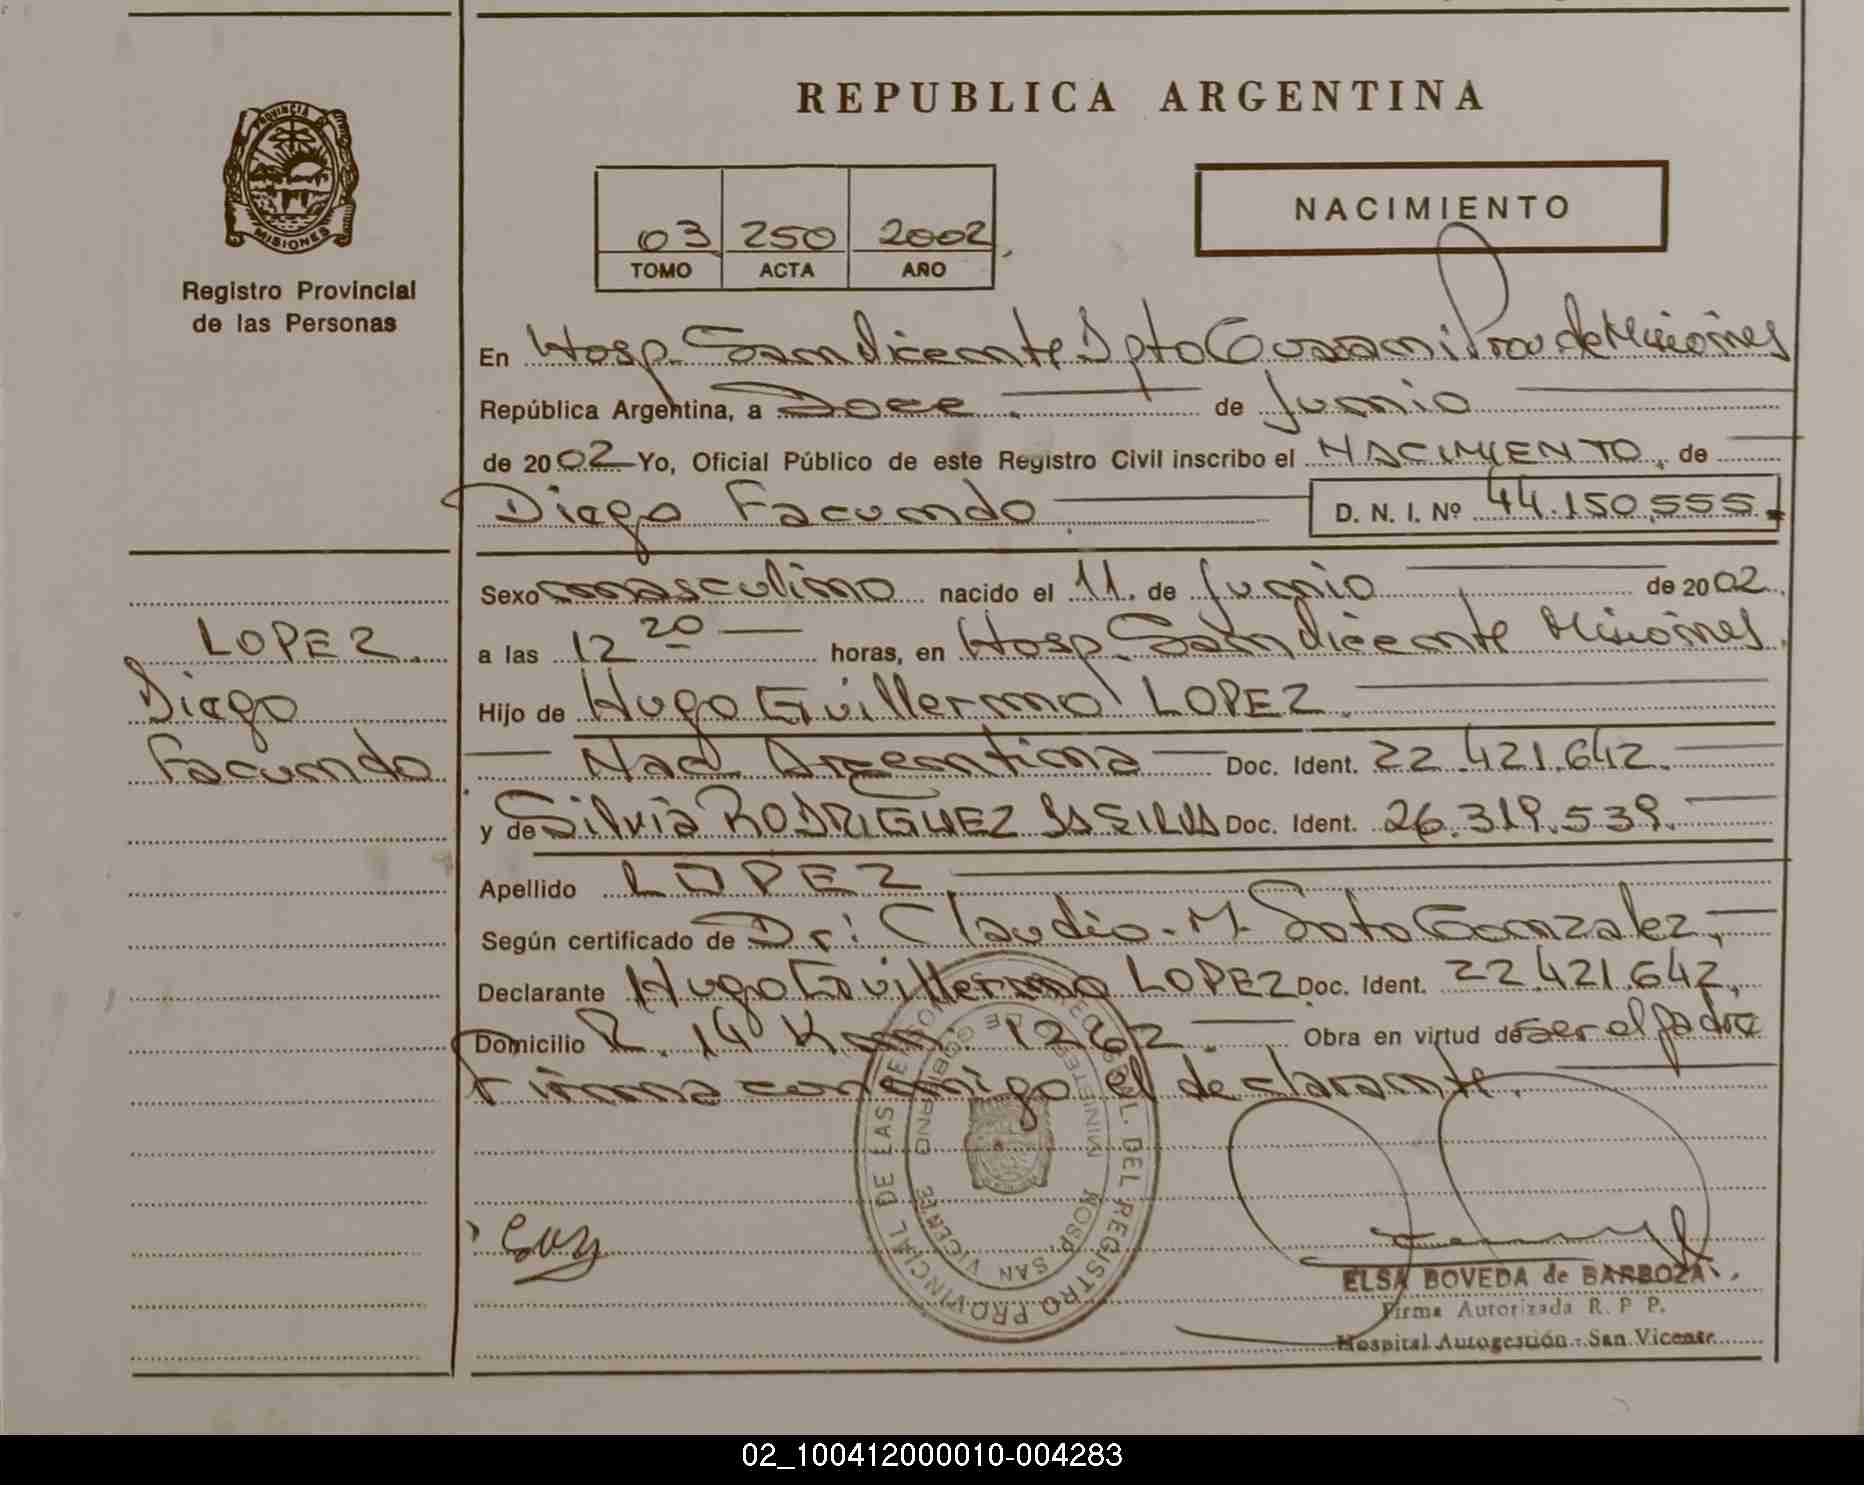 REPUBLICA ARGENTINA
PROVINCIA DE
MISIONES
Registro Provincial
de las Personas
03 250 2002
TOMO ACTA AÑO
NACIMIENTO
En Hosp. San Vicente Dpto Guarani Prov de Misiones
República Argentina, a Doce de Junio
de 2002 Yo, Oficial Público de este Registro Civil inscribo el NACIMIENTO, de
Diego Facundo D. N. I. Nº 44.150.555.
Sexo masculino nacido el 11. de Junio de 2002.
LOPEZ
Diego
Facundo
a las 12 20 horas, en Hosp. San Vicente Misiones.
Hijo de Hugo Guillermo LOPEZ.
Nac. Argentina Doc. Ident. 22.421.642.
y de Silvia RODRIGUEZ DA SILVA Doc. Ident. 26.319.539.
Apellido LOPEZ.
Según certificado de Dr: Claudio. M. Soto Gonzalez,
Declarante Hugo Guillermo LOPEZ Doc. Ident. 22.421.642,
Domicilio R. 14 Km. 1262. Obra en virtud de ser el padre
Firma conmigo el declarante.
DEL REGISTRO PROVINCIAL DE LAS
MINISTERIO DE GOBIERNO
HOSP. SAN VICENTE
ELSA BOVEDA de BARBOZA
Firma Autorizada R. P. P.
Hospital Autogestión - San Vicente
02_100412000010-004283